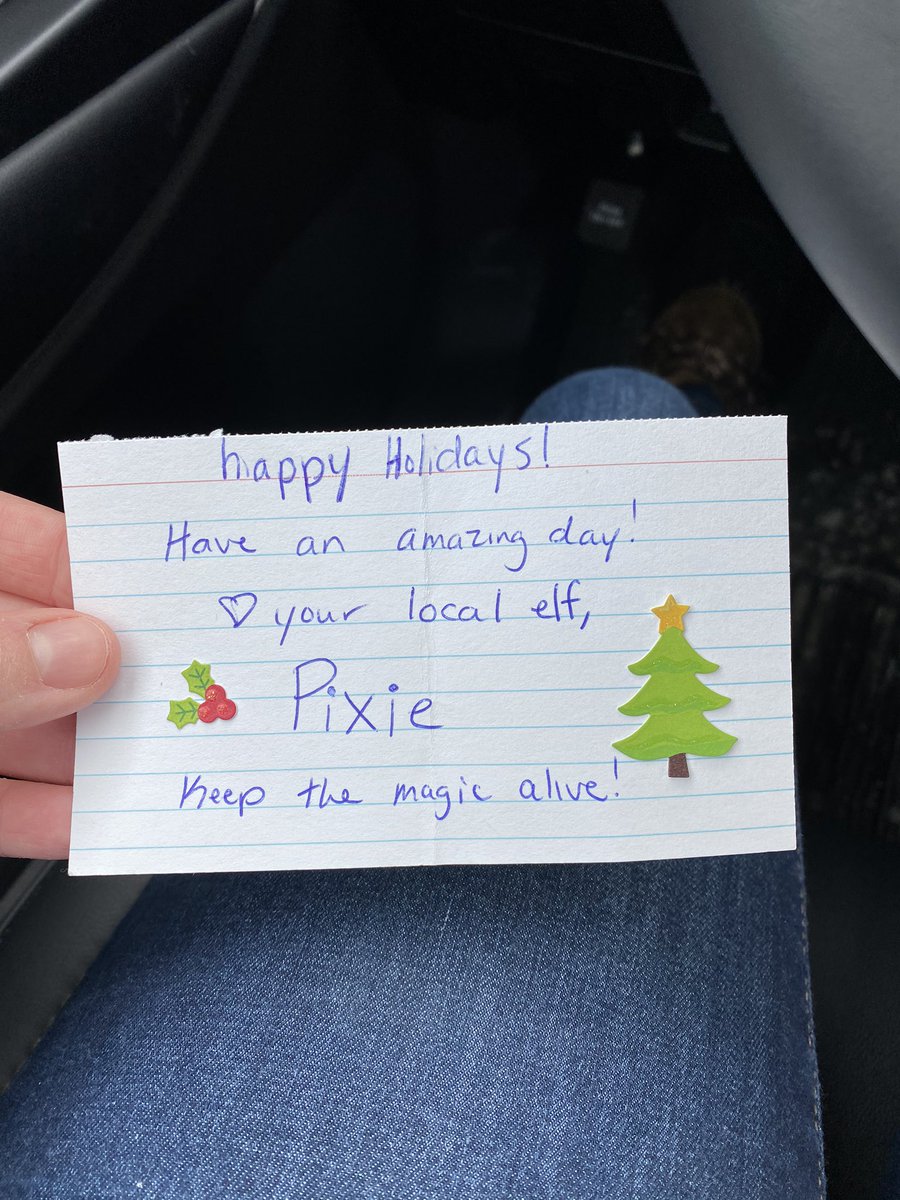 happy Holidays!
Have an amazing day!
♡ your local elf,
Pixie
Keep the magic alive!